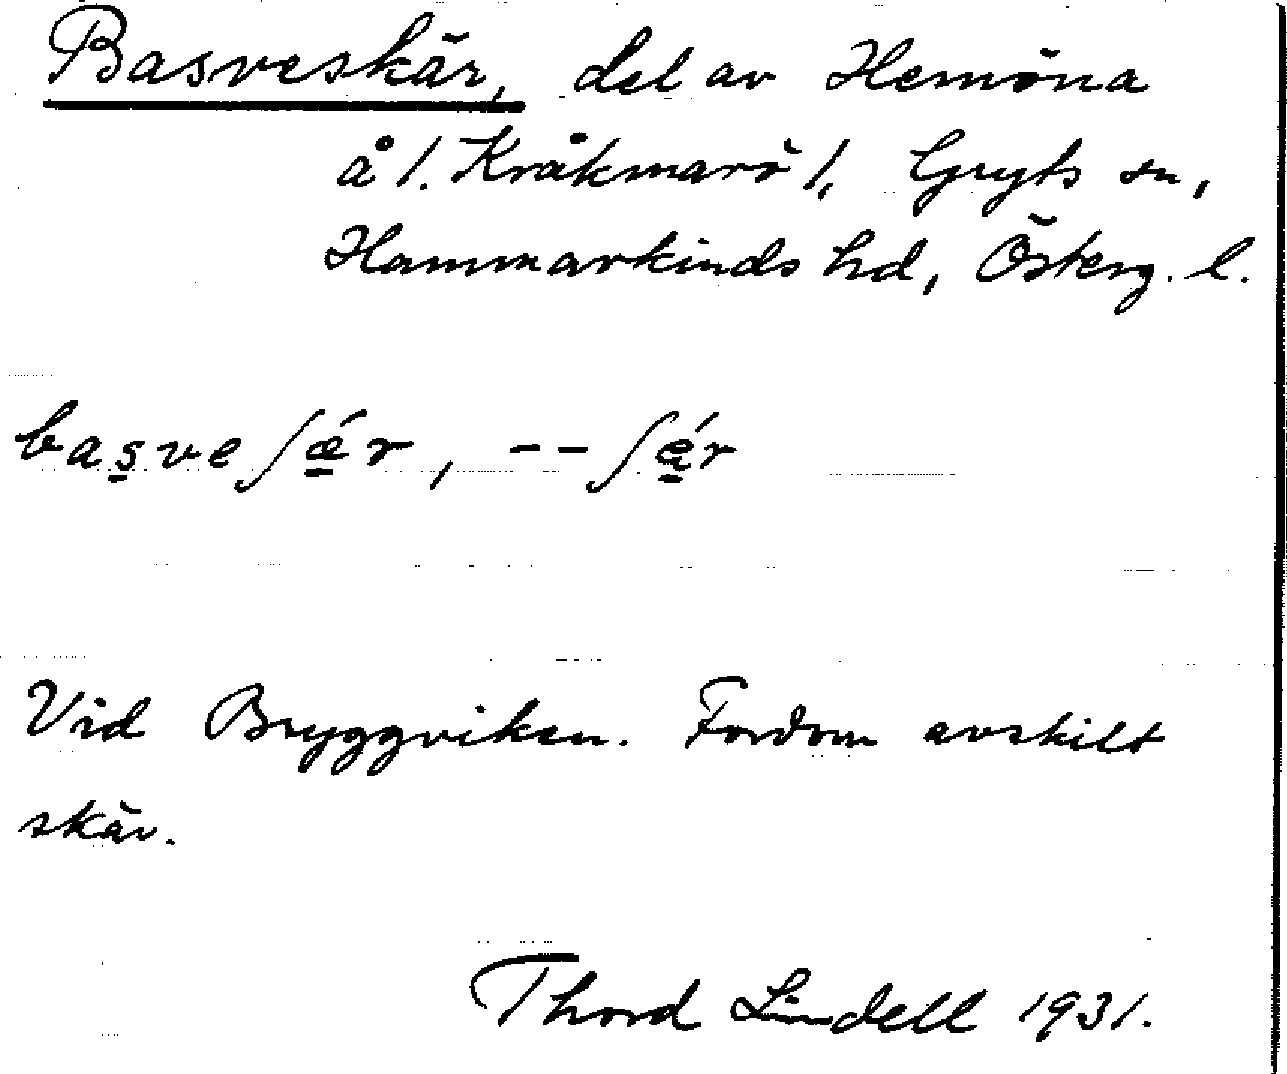 Basveskär, del av Hemöna
å /. Kråkmarö /, Gryts sn,
Hammarkinds hd, Österg. l.
basve ʃǽr, -- ʃǽr
Vid Bryggviken. Fordom avskilt
skär.
Thord Lindell 1931.